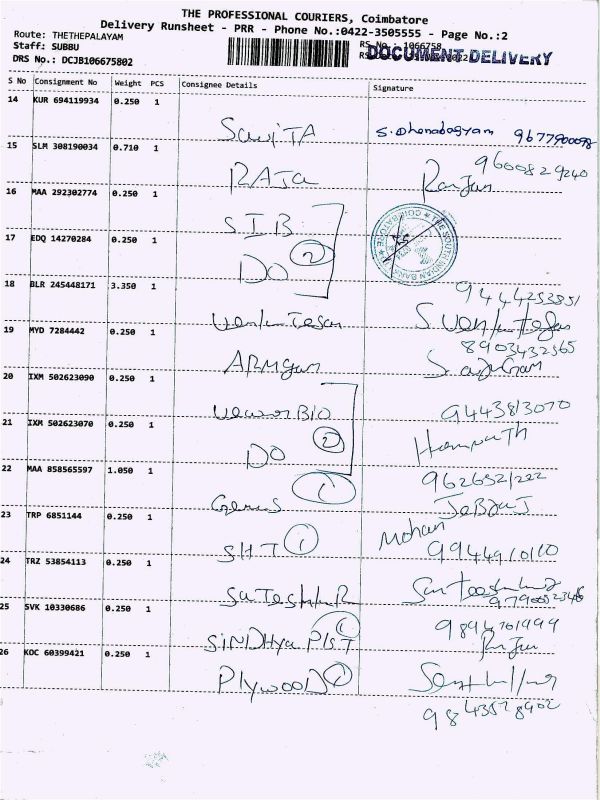 THE PROFESSIONAL COURIERS, Coimbatore
Delivery Runsheet - PRR - Phone No.:0422-3505555 - Page No.:2
Route: THETHEPALAYAM
Staff: SUBBU
DRS No.: DCJB106675802
RS No.: 1066758
DOCUMENT DELIVERY
S No Consignment No Weight PCS Consignee Details Signature
14 KUR 694119934 0.250 1
SaviTA S. Dhanabagyam 9677900098
15 SLM 308190034 0.710 1
9600829240
RAJa Ranjan
16 MAA 292302774 0.250 1
SIB
THE SOUTH INDIAN BANK
17 EDQ 14270284 0.250 1
DO 2
18 BLR 245448171 3.350 1
9444253851
Venkatesan S. Venkatesan
19 MYD 7284442 0.250 1
8903432565
20 IXM 502623090 0.250 1
9443813070
21 IXM 502623070 0.250 1
DO 2
22 MAA 858565597 1.050 1
9626521222
1
23 TRP 6851144 0.250 1
Mohan
SHT 1 9944910110
24 TRZ 53854113 0.250 1
25 SVK 10330686 0.250 1
9894701999
SINDHYA 1
26 KOC 60399421 0.250 1
PlywooD 1
9843578902